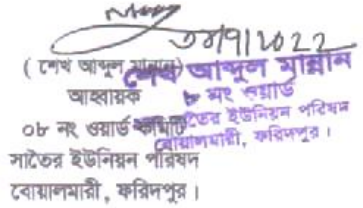 ৩০/৭/২০২২
( শেখ আব্দুল মান্নান)
আহ্বায়ক
০৮ নং ওয়ার্ড কমিটি
সাতৈর ইউনিয়ন পরিষদ
বোয়ালমারী , ফরিদপুর ।
শেখ আব্দুল মান্নান
৮ নং ওয়ার্ড
সাতৈর ইউনিয়ন পরিষদ
বোয়ালমারী, ফরিদপুর ।